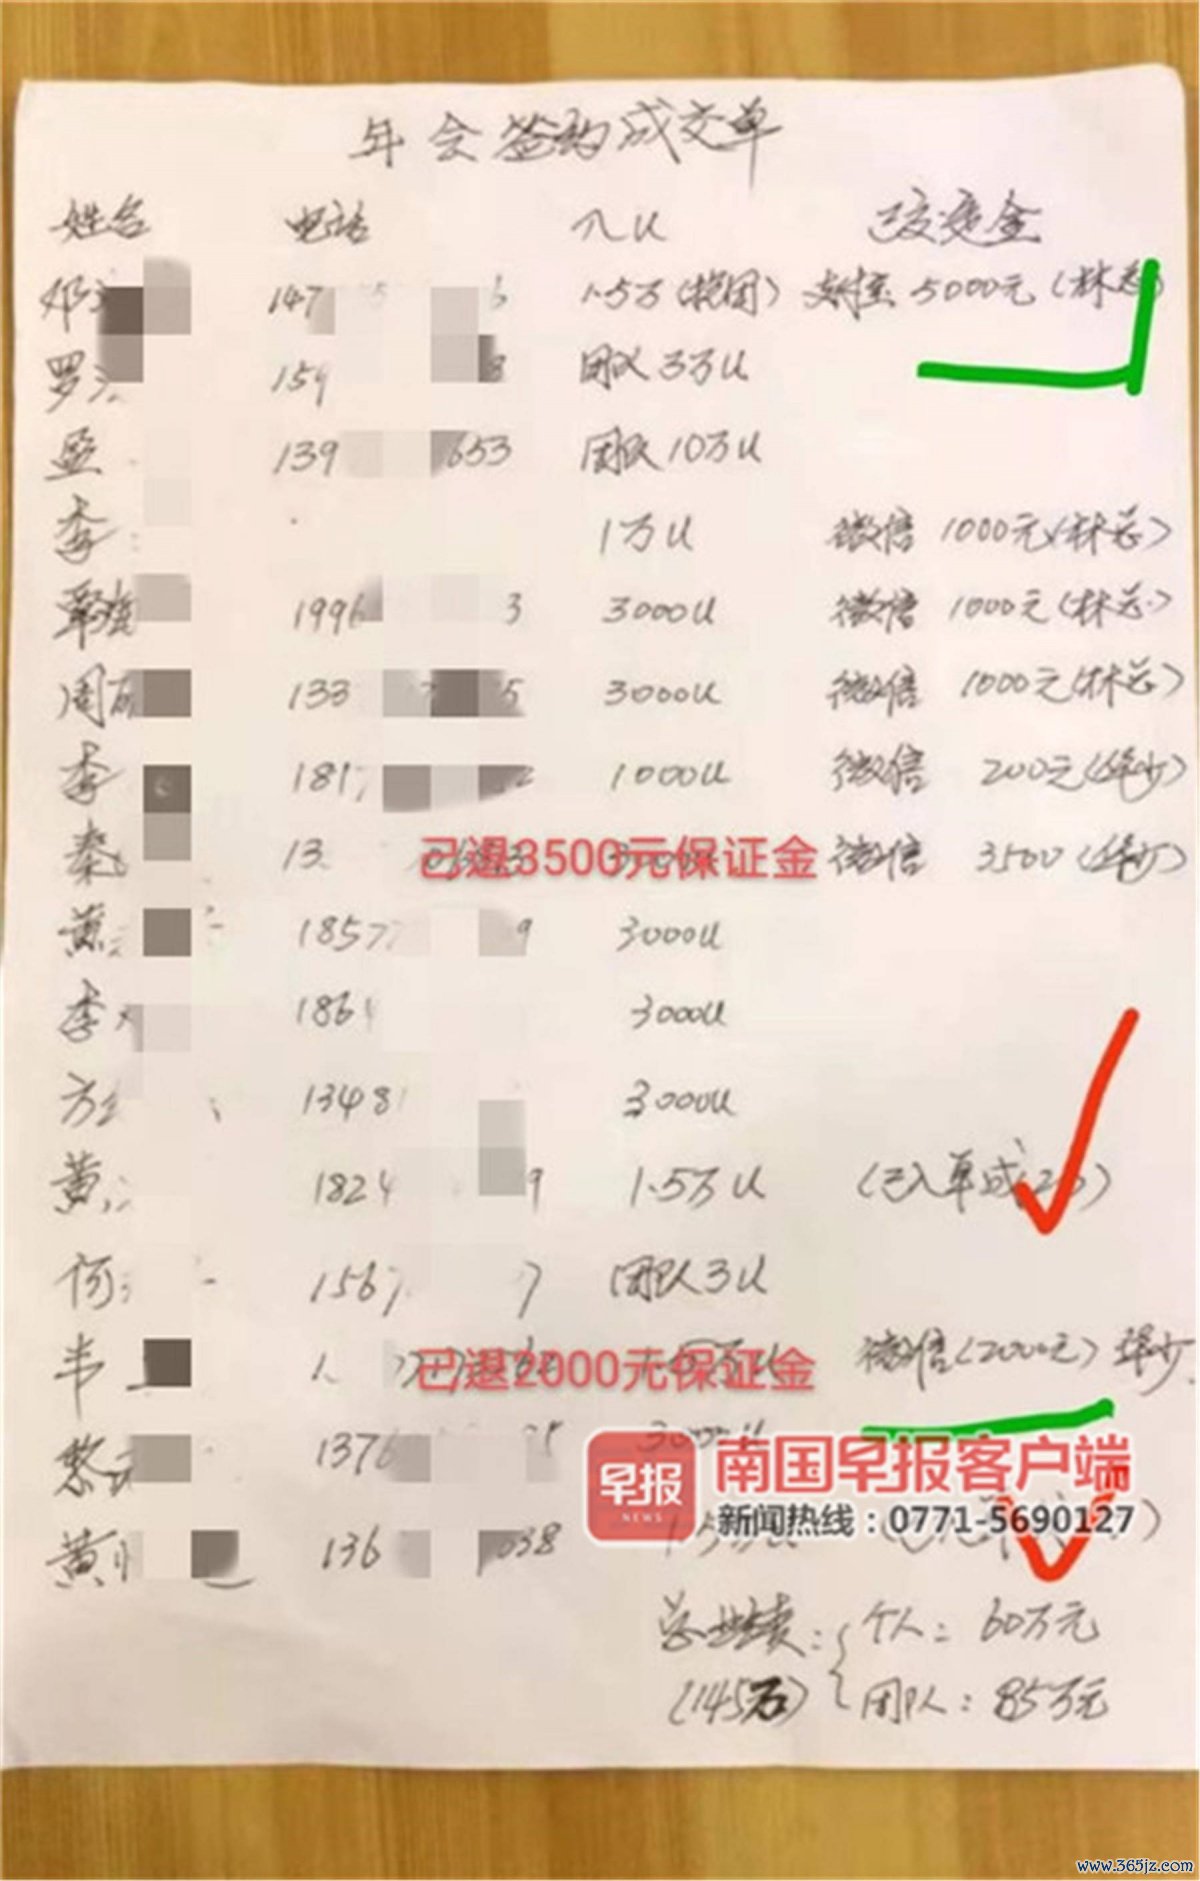 年会签约成交单
姓名 电话 几U 已交定金
邓 147 5 6 1.5万(抱团) 支付宝 5000元(林总)
罗 159 8 团队3万U
蓝 139 653 团队10万U
李 1万U 微信 1000元(林总)
覃 1996 3 3000U 微信 1000元(林总)
周 133 5 3000U 微信 1000元(林总)
李 181 2 1000U 微信 200元(华少)
秦 13 已退3500元保证金 微信 3500(华少)
黄 1857 9 3000U
李 186 3000U
方 1348 3000U
黄 1824 9 1.5万U (已入单成
何 156 7 团队3U
韦 1 已退2000元保证金 微信(2000元)华少
黎 1376 3000U
早报
NEWS
南国早报客户端
新闻热线:0771-5690127
黄 136 038
总业绩: 个人: 60万元
(145万) 团队: 85万元
www.365jz.com